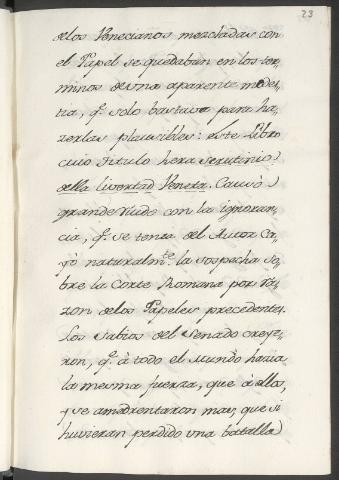 23
delos Venecianos mezcladas con
el Papel se quedaban en los ter-
minos de vna aparente modes-
tia, q.e solo bastava para ha-
zerlas plausibles: este Libro
cuio titulo hera scrutinio
della livertad Veneta. Causò
grande ruido con la ignoran-
cia, q.e se tenia del Autor Ca-
yò naturalm.te la sospecha so-
bre la Corte Romana por ra-
zon delos Papeles precedentes.
Los Sabios del Senado creye-
ron, q.e à todo el mundo haria
la mesma fuerza, que à ellos,
y se amedrentaron mas, que si
huvieran perdido vna batalla